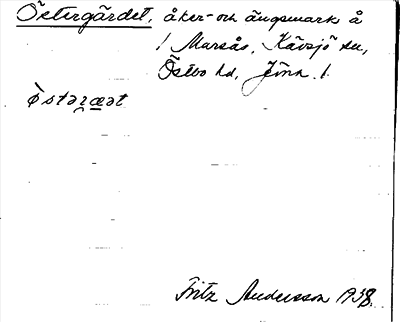 Östergärdet, åker- och ängsmark å
/ Marsås, Kävsjö sn,
Östbo hd, Jönk. /
östəræət
Fritz Andersson 1938.